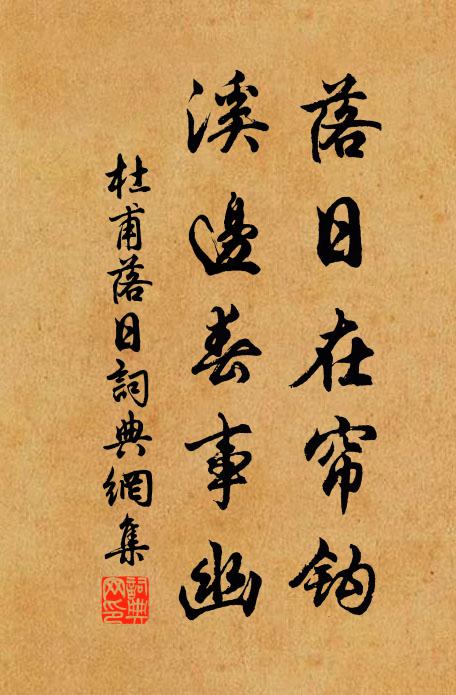 落日在帘钩
溪邊春事幽
杜甫落日詞典網集
詞典網印